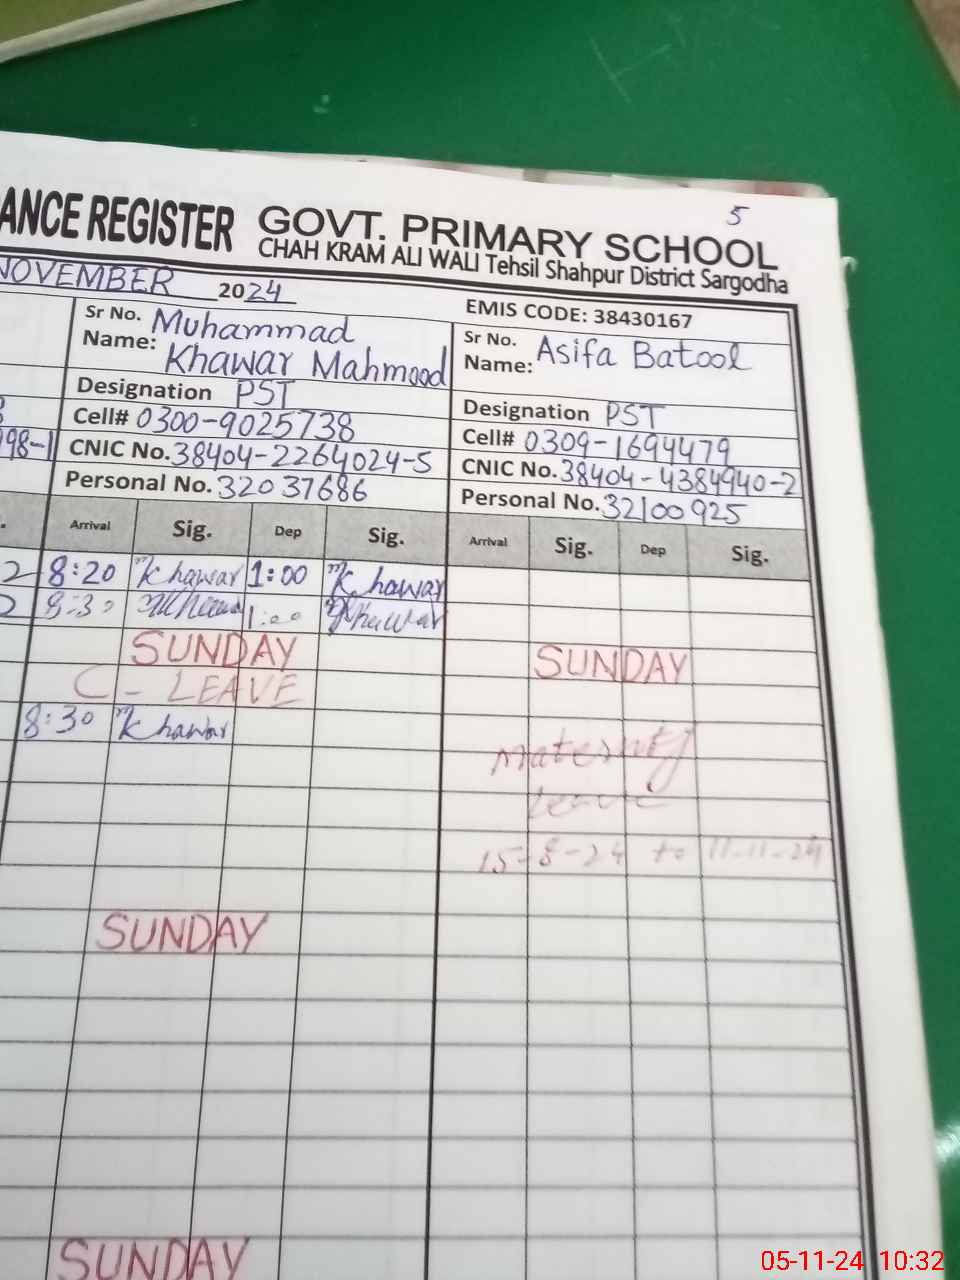 5
ANCE REGISTER GOVT. PRIMARY SCHOOL
CHAH KRAM ALI WALI Tehsil Shahpur District Sargodha
NOVEMBER 2024
EMIS CODE: 38430167
Sr No.
Name: Muhammad
Khawar Mahmood
Designation PST
Cell# 0300-9025738
CNIC No. 38404-2264024-5
Personal No. 32037686
Sr No.
Name: Asifa Batool
Designation PST
Cell# 0309-1694479
CNIC No. 38404-4384940-2
Personal No. 32100925
98-1
Arrival Sig. Dep Sig. Arrival Sig. Dep Sig.
2 8:20 Khawar 1:00 Khawar
2 8:30 1:00 Khawar
SUNDAY SUNDAY
C - LEAVE
8:30 Khawar
Maternity
Leave
15-8-24 to 11-11-24
SUNDAY
SUNDAY
05-11-24 10:32